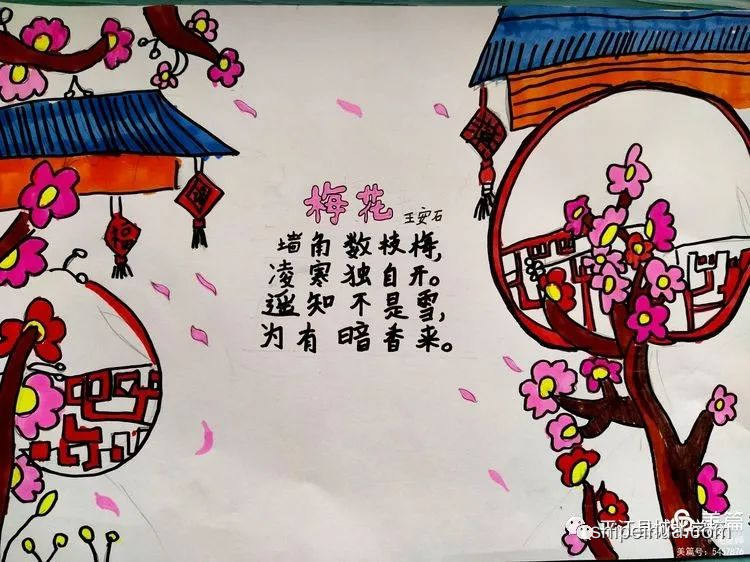 梅花 王安石
墙角数枝梅,
凌寒独自开。
遥知不是雪,
为有暗香来。
美篇
smpeihua.com
美篇号：5457876